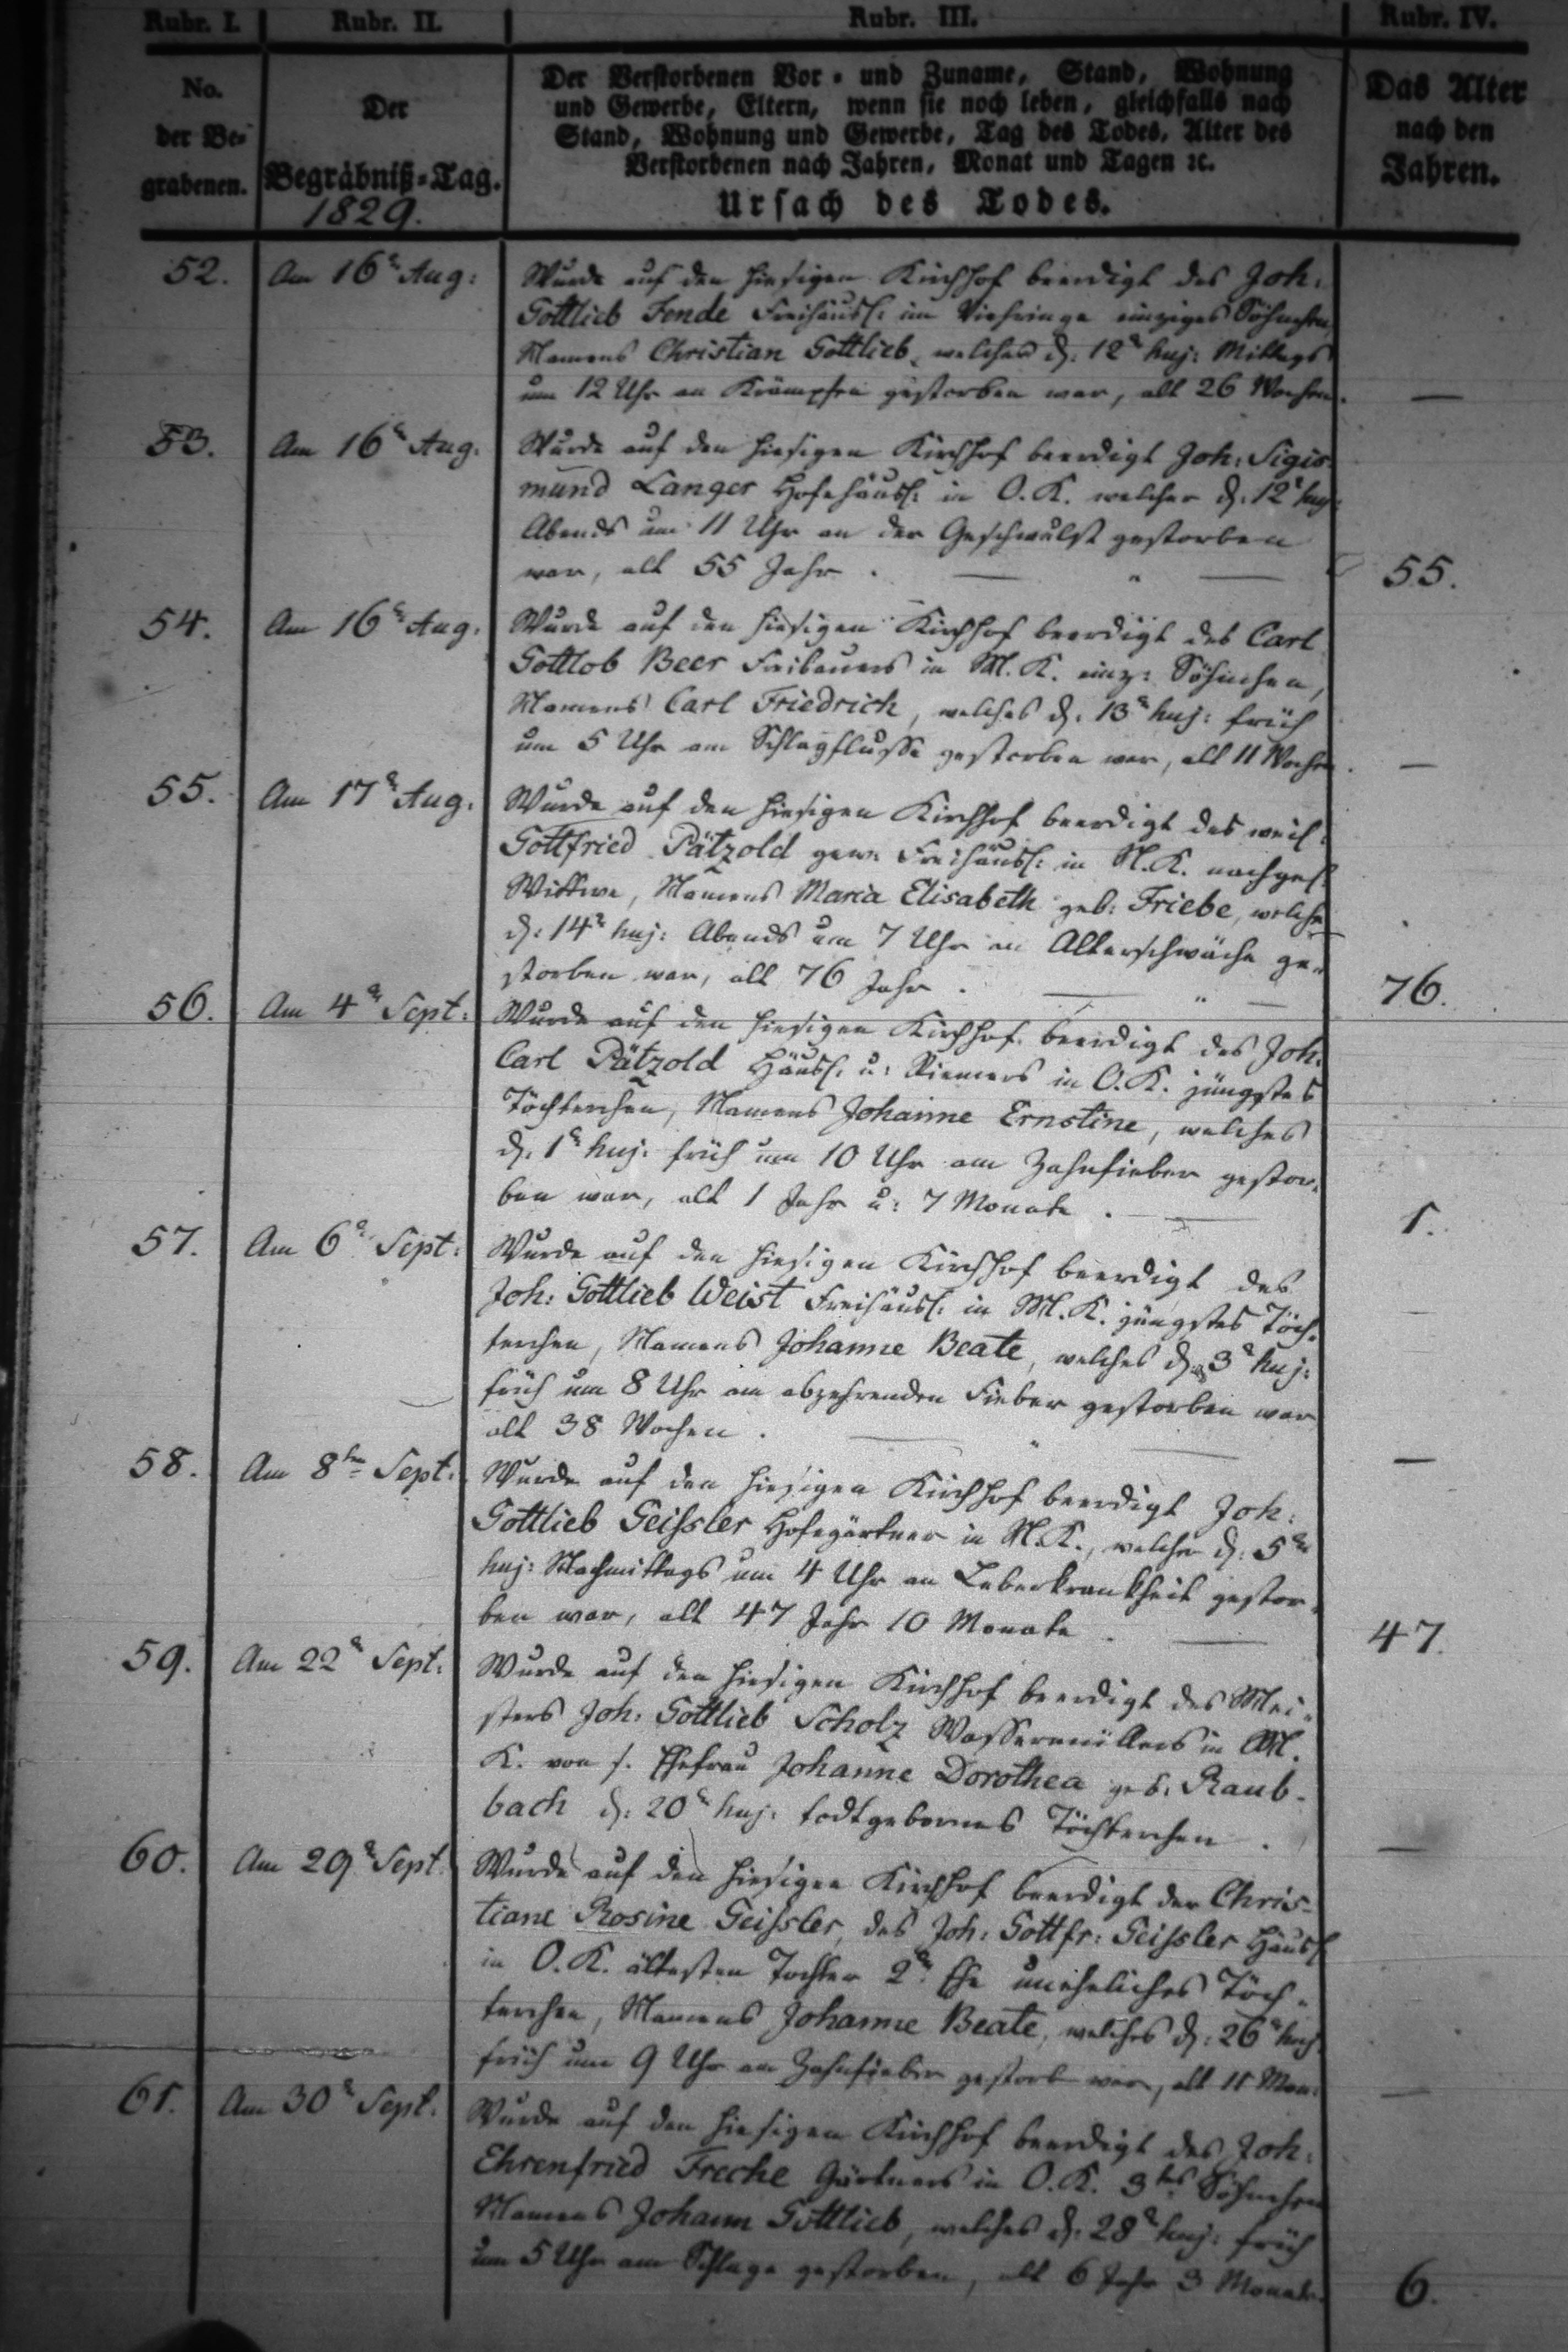 Rubr. I. Rubr. II. Rubr. III. Rubr. IV.
No. der Be- grabenen.
Der Begräbniß-Tag.
1829.
Der Verstorbenen Vor- und Zuname, Stand, Wohnung
und Gewerbe, Eltern, wenn sie noch leben, gleichfalls nach
Stand, Wohnung und Gewerbe, Tag des Todes, Alter des
Verstorbenen nach Jahren, Monat und Tagen ꝛc.
Ursach des Todes.
Das Alter nach den Jahren.
52. Am 16ten Aug: Wurde auf den hiesigen Kirchhof beerdigt des Joh:
Gottlieb Fende Freihäusl: im Viehringe einziges Söhnchen,
Namens Christian Gottlieb, welches d: 12ten huj: Mittags
um 12 Uhr an Krämpfen gestorben war, alt 26 Wochen. —
53. Am 16ten Aug. Wurde auf den hiesigen Kirchhof beerdigt Joh: Sigis-
mund Langer Hofehäusl: in O. K. welcher d: 12ten huj:
Abends um 11 Uhr an der Geschwulst gestorben
war, alt 55 Jahr. — " — 55.
54. Am 16ten Aug. Wurde auf den hiesigen Kirchhof beerdigt des Carl
Gottlob Beer Freibauers in M. K. einz: Söhnchen,
Namens Carl Friedrich, welches d: 13ten huj: früh
um 5 Uhr am Schlagflusse gestorben war, alt 11 Wochen. —
55. Am 17ten Aug. Wurde auf den hiesigen Kirchhof beerdigt des weil:
Gottfried Pätzold gew: Freihäusl: in N. K. nachgel:
Wittwe, Namens Maria Elisabeth geb: Friebe, welche
d: 14ten huj: Abends um 7 Uhr an Alterschwäche ge-
storben war, alt 76 Jahr. — " — 76.
56. Am 4ten Sept: Wurde auf den hiesigen Kirchhof beerdigt des Joh:
Carl Pätzold Häusl: u: Riemers in O. K. jüngstes
Töchterchen, Namens Johanne Ernstine, welches
d: 1ten huj: früh um 10 Uhr am Zahnfieber gestor-
ben war, alt 1 Jahr u: 7 Monate. — 1.
57. Am 6ten Sept: Wurde auf den hiesigen Kirchhof beerdigt des
Joh: Gottlieb Weist Freihäusl: in M. K. jüngstes Töch-
terchen, Namens Johanne Beate, welches d: 3ten huj:
früh um 8 Uhr am abzehrenden Fieber gestorben war
alt 38 Wochen. — " — —
58. Am 8ten Sept: Wurde auf den hiesigen Kirchhof beerdigt Joh:
Gottlieb Geissler Hofegärtner in N. K., welcher d: 5ten
huj: Nachmittags um 4 Uhr an Leberkrankheit gestor-
ben war, alt 47 Jahr 10 Monate. — 47.
59. Am 22ten Sept: Wurde auf den hiesigen Kirchhof beerdigt des Mei-
sters Joh: Gottlieb Scholz Wassermüllers in M.
K. von s. Ehefrau Johanne Dorothea geb: Raub-
bach d: 20ten huj: todtgebornes Töchterchen. —
60. Am 29ten Sept. Wurde auf den hiesigen Kirchhof beerdigt der Chris-
tiane Rosine Geissler, des Joh: Gottfr: Geissler Häusl:
in O. K. ältesten Tochter 2ter Ehe uneheliches Töch-
terchen, Namens Johanne Beate, welches d: 26ten huj:
früh um 9 Uhr am Zahnfieber gestorb war, alt 11 Mon: —
61. Am 30ten Sept. Wurde auf den hiesigen Kirchhof beerdigt des Joh:
Ehrenfried Freche Gärtners in O. K. 3tes Söhnchen
Namens Johann Gottlieb, welches d: 28ten huj: früh
um 5 Uhr am Schlage gestorben, alt 6 Jahr 3 Monate. 6.